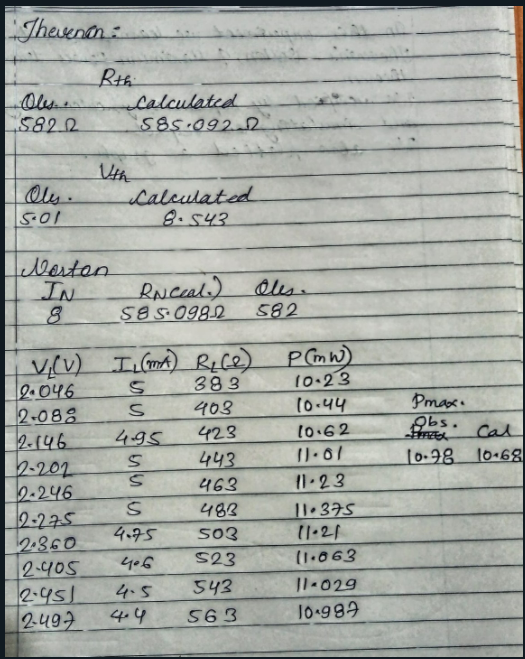 Thevenin :
Rth
Obs. Calculated
582Ω 585.092Ω
Vth
Obs. Calculated
5.01 8.543
Norton
IN RN(cal.) Obs.
8 585.098Ω 582
VL(V) IL(mA) RL(Ω) P(mW)
2.046 5 383 10.23
2.088 5 403 10.44 Pmax.
2.146 4.95 423 10.62 Obs. Cal
2.202 5 443 11.01 10.78 10.68
2.246 5 463 11.23
2.275 5 483 11.375
2.360 4.75 503 11.21
2.405 4.6 523 11.063
2.451 4.5 543 11.029
2.497 4.4 563 10.987